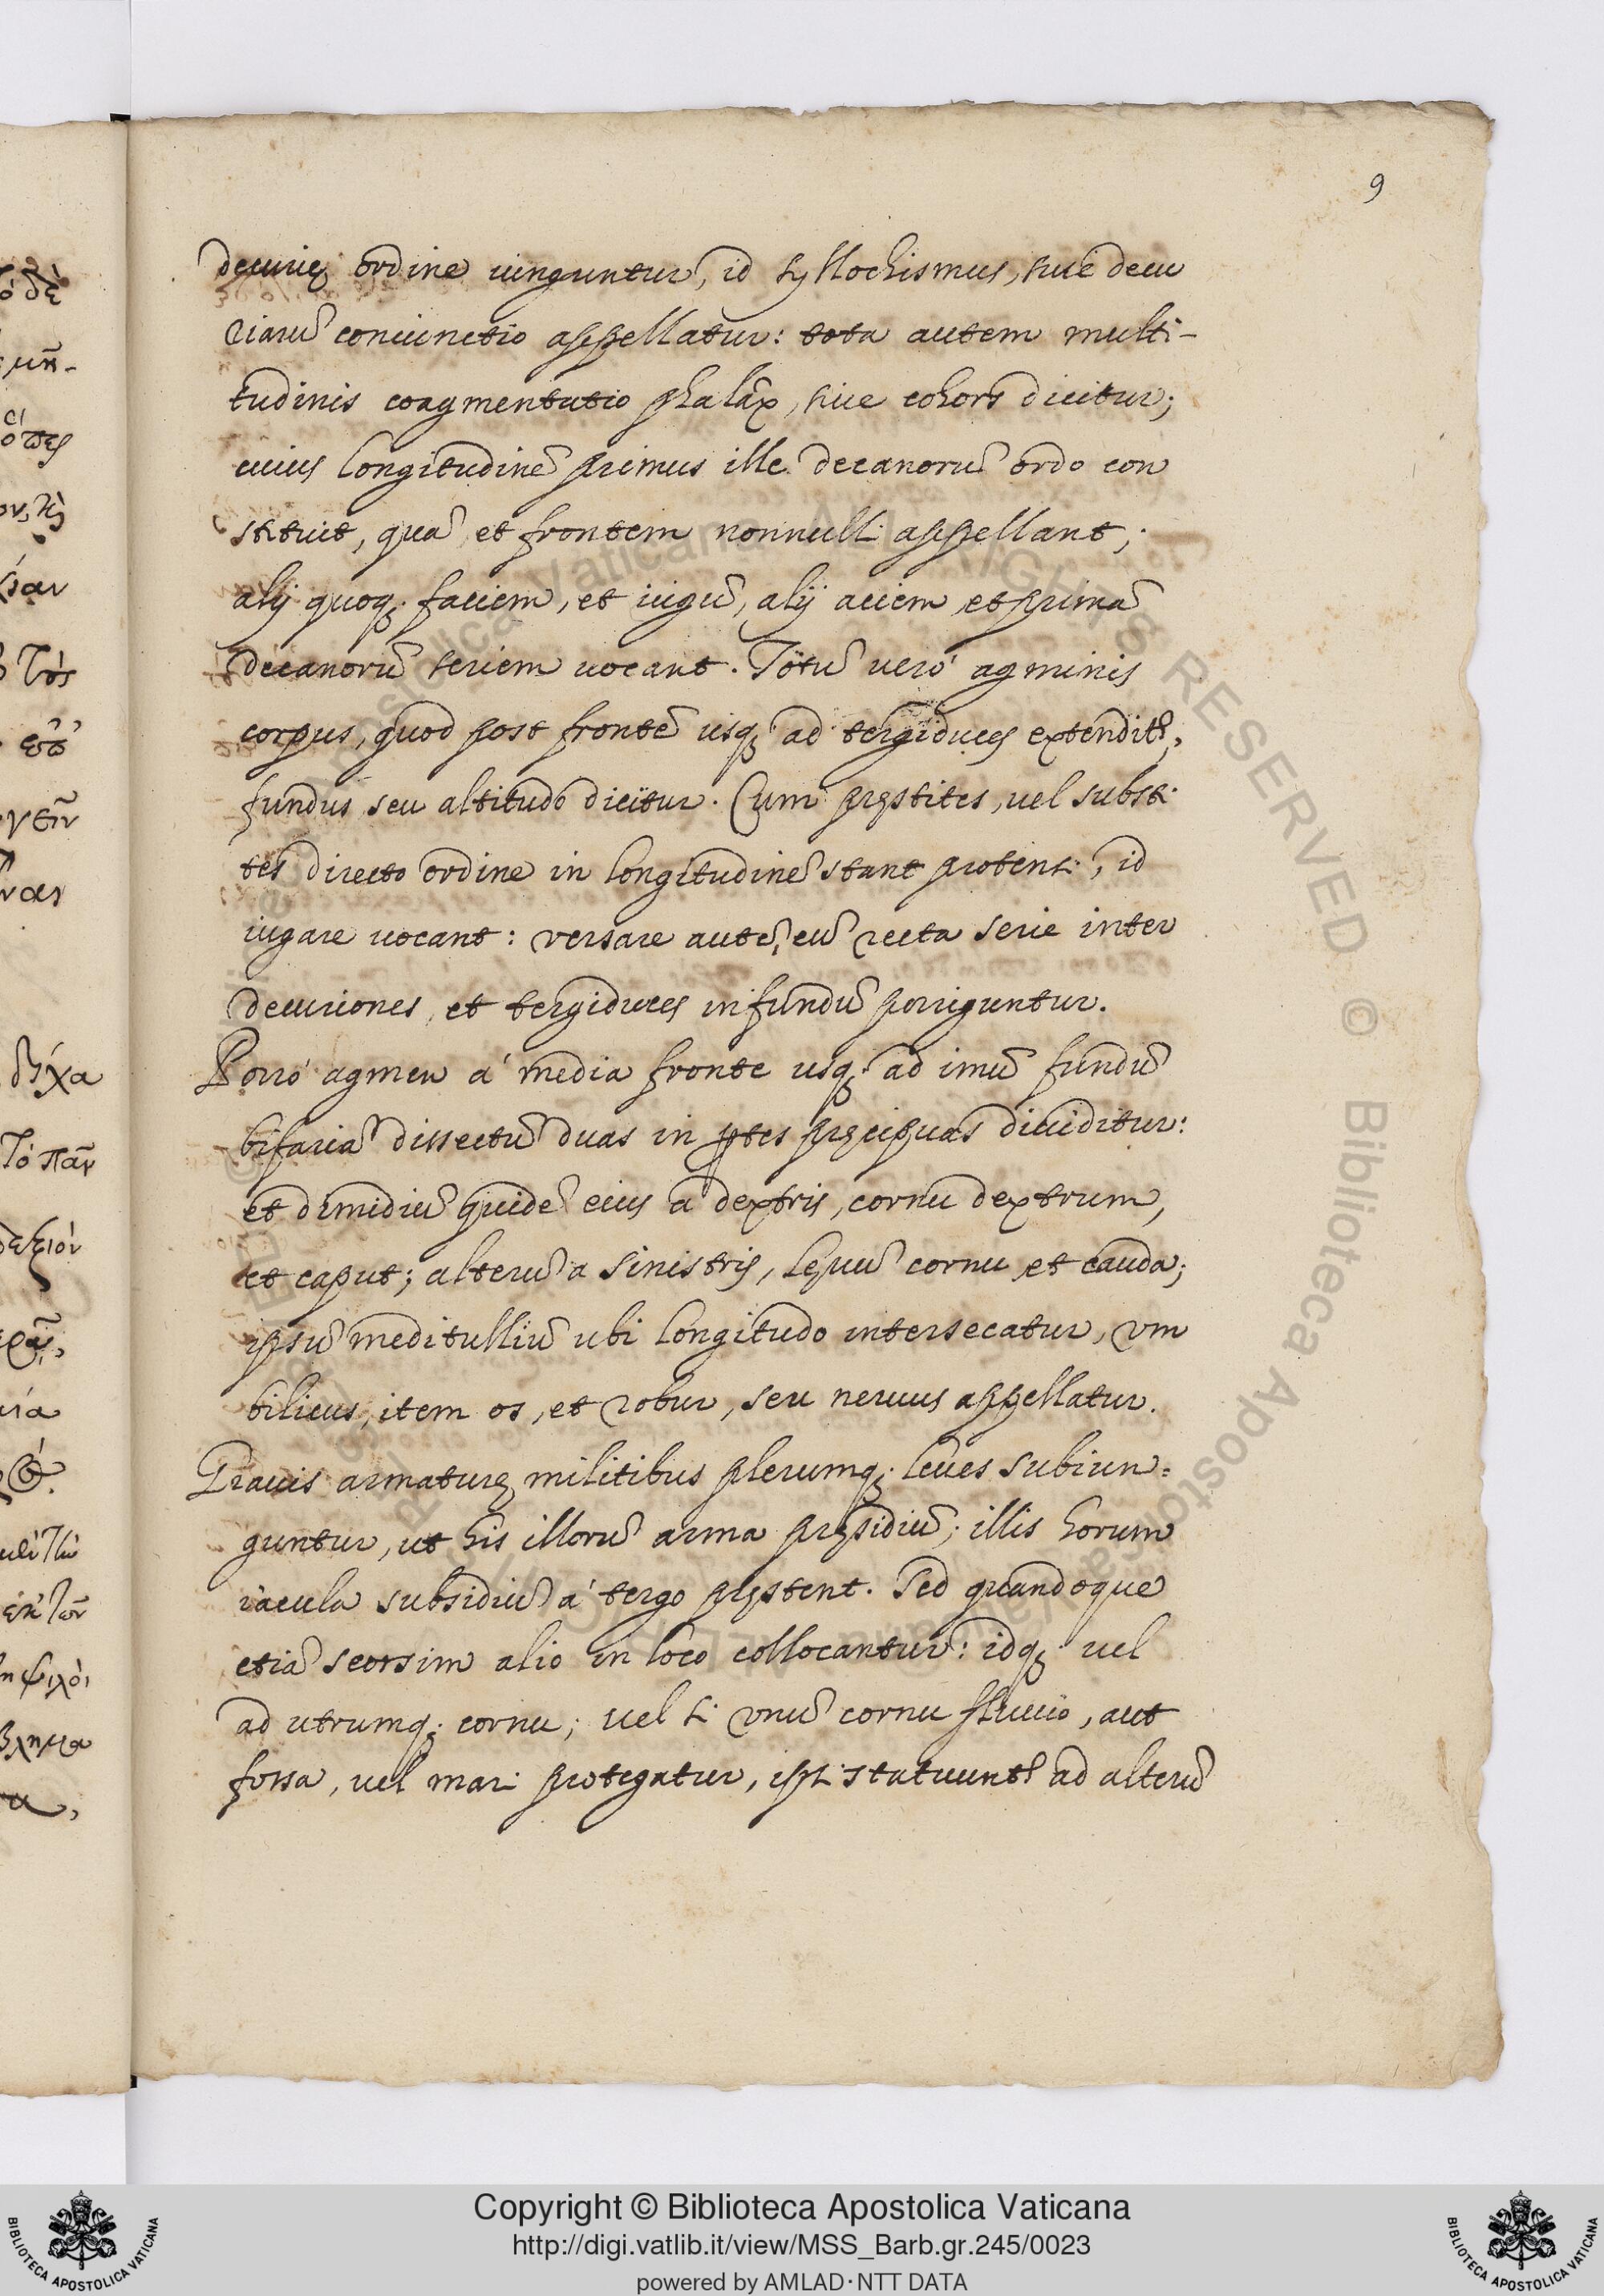 9
decurię ordine iunguntur, id syllochismus, siue decu
riarũ coniunctio appellatur: tota autem multi-
tudinis coagmentatio phalãx, siue cohors dicitur;
cuius longitudinẽ primus ille decanorũ ordo con
stituit, quã et frontem nonnulli appellant;
alij quoq; faciem, et iugũ, alij aciem et primã
decanorũ seriem uocant. Totũ uerò agminis
corpus, quod post frontẽ usq; ad tergiduces extendit̃,
fundus seu altitudo dicitur. Cum pręstites, uel substi
tes directo ordine in longitudinẽ stant protensi, id
iugare uocant: versare autẽ, cũ recta serie inter
decuriones, et tergiduces in fundũ porriguntur.
Porrò agmen à media fronte usq; ad imũ fundũ
bifariã dissectũ duas in ꝑtes pręcipuas diuiditur:
et dimidiũ quidẽ eius a dextris, cornu dextrum,
et caput; alterũ a sinistris, lęuũ cornu et cauda;
ipsũ meditulliũ ubi longitudo intersecatur, vm
bilicus, item os, et robur, seu neruus appellatur.
Grauis armaturę militibus plerumq; leues subiun=
guntur, ut his illorũ arma pręsidiũ; illis horum
iacula subsidiũ à tergo pręstent. Sed quandoque
etiã seorsim alio in loco collocantur: idq; uel
ad utrumq; cornu; uel si vnũ cornu fluuio, aut
fossa, uel mari protegatur, ipsi statuunt̃ ad alterũ
δίχα
Τὸ πᾶν
δεξιόν
ψιλοὶ
Copyright © Biblioteca Apostolica Vaticana
http://digi.vatlib.it/view/MSS_Barb.gr.245/0023
powered by AMLAD·NTT DATA
BIBLIOTECA APOSTOLICA VATICANA
BIBLIOTECA APOSTOLICA VATICANA